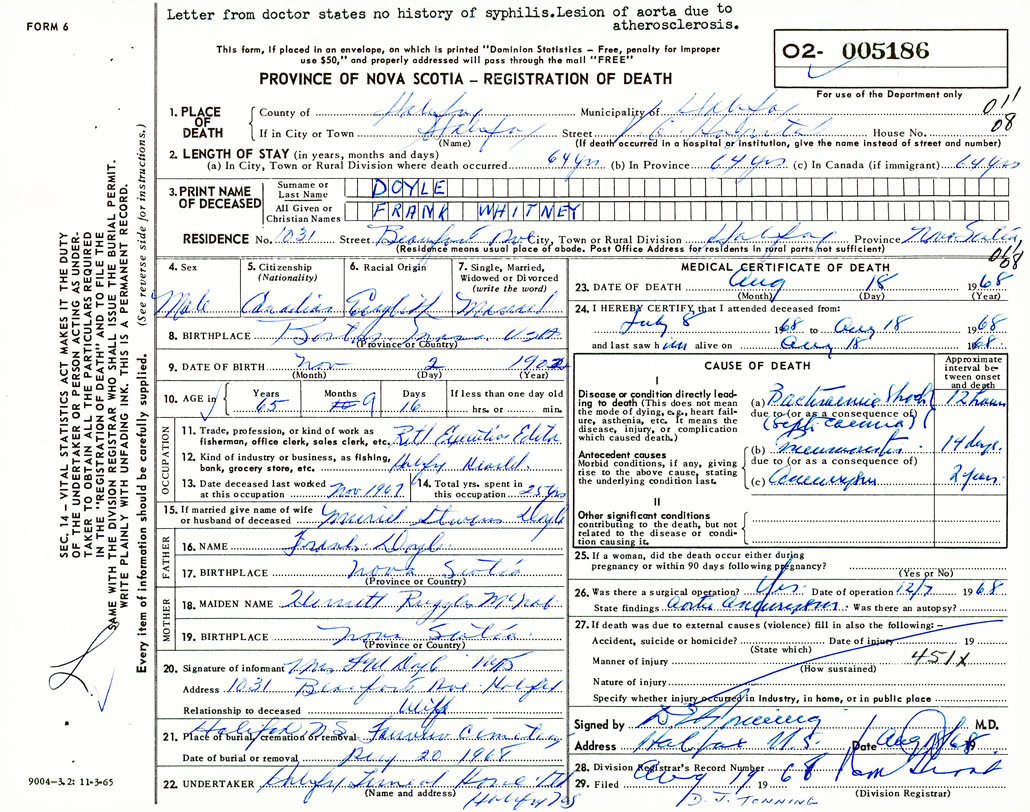 Letter from doctor states no history of syphilis.Lesion of aorta due to
atherosclerosis.
FORM 6
This form, if placed in an envelope, on which is printed "Dominion Statistics – Free, penalty for improper
use $50," and properly addressed will pass through the mail "FREE"
PROVINCE OF NOVA SCOTIA – REGISTRATION OF DEATH
O2- 005186
For use of the Department only
011
08
1. PLACE OF DEATH
County of Halifax Municipality of Halifax
If in City or Town Halifax Street V.G. Hospital House No.
(Name) (If death occurred in a hospital or institution, give the name instead of street and number)
2. LENGTH OF STAY (in years, months and days)
(a) In City, Town or Rural Division where death occurred 64 yrs (b) In Province 64 yrs (c) In Canada (if immigrant) 64 yrs
3. PRINT NAME OF DECEASED
Surname or Last Name DOYLE
All Given or Christian Names FRANK WHITNEY
RESIDENCE No. 1031 Street Beaufort Ave City, Town or Rural Division Halifax Province Nova Scotia
(Residence means usual place of abode. Post Office Address for residents in rural parts not sufficient)
4. Sex Male
5. Citizenship (Nationality) Canadian
6. Racial Origin English
7. Single, Married, Widowed or Divorced (write the word) Married
8. BIRTHPLACE Boston Mass USA
(Province or Country)
9. DATE OF BIRTH Nov 2 190
(Month) (Day) (Year)
10. AGE in Years 65 Months 9 Days 16 If less than one day old hrs. or min.
OCCUPATION
11. Trade, profession or kind of work as fisherman, office clerk, sales clerk, etc. Retd Executive Editor
12. Kind of industry or business, as fishing, bank, grocery store, etc. Halifax Herald
13. Date deceased last worked at this occupation Nov 1967
14. Total yrs. spent in this occupation 25 yrs
15. If married give name of wife or husband of deceased Muriel Stevens Doyle
FATHER
16. NAME Frank Doyle
17. BIRTHPLACE Nova Scotia
(Province or Country)
MOTHER
18. MAIDEN NAME Ruggles McNab
19. BIRTHPLACE Nova Scotia
(Province or Country)
20. Signature of informant Mrs F W Doyle
Address 1031 Beaufort Ave Halifax
Relationship to deceased Wife
21. Place of burial, cremation or removal Halifax N.S. Fairview Cemetery
Date of burial or removal Aug 20 1968
22. UNDERTAKER Halifax Funeral Home Ltd
(Name and address) Halifax NS
9004-3.2: 11-3-65
SEC. 14 – VITAL STATISTICS ACT MAKES IT THE DUTY
OF THE UNDERTAKER OR PERSON ACTING AS UNDER-
TAKER TO OBTAIN ALL THE PARTICULARS REQUIRED
IN THE "REGISTRATION OF DEATH", AND TO FILE THE
SAME WITH THE DIVISION REGISTRAR WHO SHALL ISSUE THE BURIAL PERMIT.
WRITE PLAINLY WITH UNFADING INK. THIS IS A PERMANENT RECORD.
Every item of information should be carefully supplied. (See reverse side for instructions.)
MEDICAL CERTIFICATE OF DEATH
23. DATE OF DEATH Aug 18 1968
(Month) (Day) (Year)
24. I HEREBY CERTIFY that I attended deceased from:
July 8 1968 to Aug 18 1968
and last saw him alive on Aug 18 1968.
CAUSE OF DEATH
Approximate interval between onset and death
I
Disease or condition directly leading to death (This does not mean the mode of dying, e.g., heart failure, asthenia, etc. It means the disease, injury, or complication which caused death.)
(a) Bacteraemic Shock 12 hours
due to (or as a consequence of)
(Septicaemia)
Antecedent causes
Morbid conditions, if any, giving rise to the above cause, stating the underlying condition last.
(b) 14 days
due to (or as a consequence of)
(c) Aneurysm 2 years
II
Other significant conditions contributing to the death, but not related to the disease or condition causing it.
25. If a woman, did the death occur either during pregnancy or within 90 days following pregnancy?
(Yes or No)
26. Was there a surgical operation? Yes. Date of operation 12/7 1968
State findings Aortic aneurysm. Was there an autopsy?
27. If death was due to external causes (violence) fill in also the following: –
Accident, suicide or homicide? Date of injury 19
(State which)
Manner of injury 451X
(How sustained)
Nature of injury
Specify whether injury occurred in Industry, in home, or in public place
Signed by M.D.
Address Halifax N.S. Date Aug 68 19
28. Division Registrar's Record Number
29. Filed Aug 19 68
(Division Registrar)
D. J. TONNING